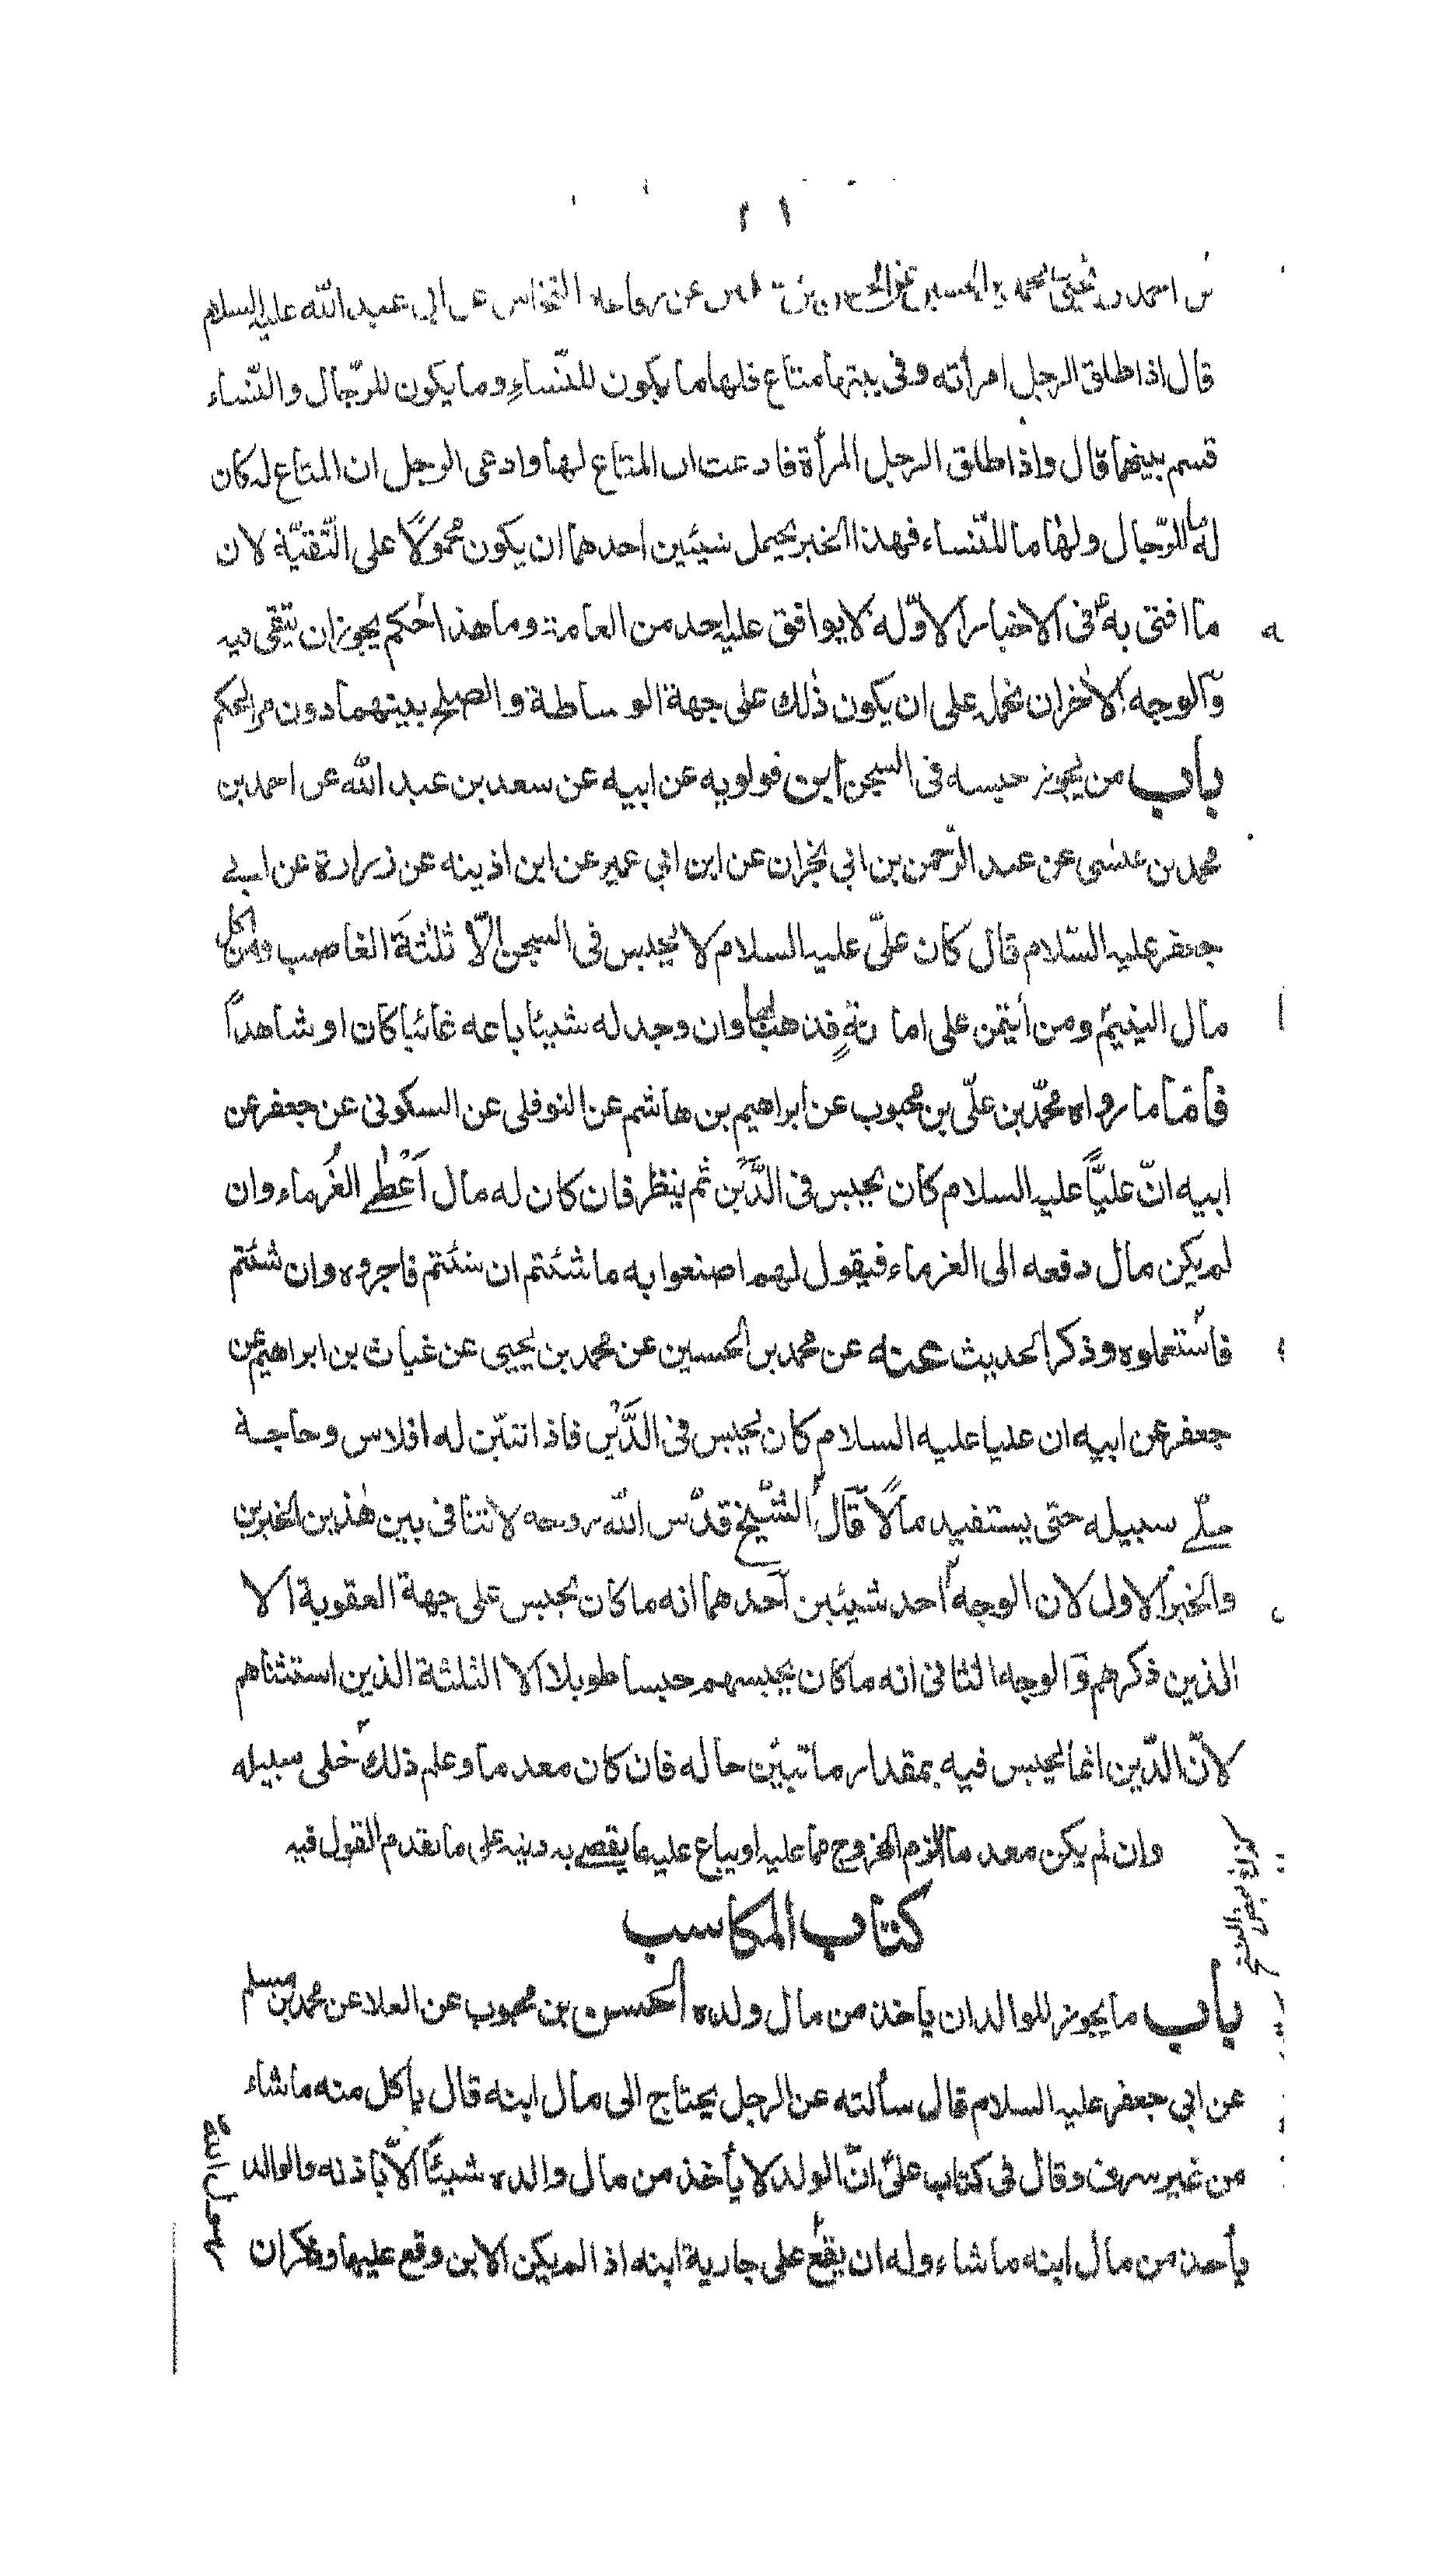 عن رفاعة النخاس عن ابى عبد الله عليه السلام
قال اذا طلق الرجل امرأته وفى بيتها متاع فلها ما يكون للنّساءِ وما يكون للرّجال والنّساء
قسم بينهما قال واذا طلق الرجل المرأة فادعت ان المتاع لها وادعى الرجل ان المتاع له كان
له ما للرّجال ولها ما للنّساء فهذا الخبر يحتمل شيئين احدهما ان يكون محمولًا على التّقيّة لان
ما افتى به ع فى الاخبار الاوّله لا يوافق عليه احد من العامة وما هذا حكمه يجوز ان يتّقى فيه
وآلوجه الاخر ان نحمله على ان يكون ذٰلك على جهة الوساطة والصلح بينهما دون مر الحكم
باب من يجوز حبسه فى السجن ابن قولويه عن ابيه عن سعد بن عبد الله عن احمد بن
محمد بن عيسى عن عبد الرّحمن بن ابي نجران عن ابن ابي عمير عن ابن اذينه عن زرارة عن ابي
جعفر عليه السّلام قال كان علىّ عليه السلام لا يحبس فى السجن الّا ثلٰثةَ الغاصب ومن اكل
مال اليتيم ومن أيتمن على امانةٍ فذهب بها وان وجد له شيئا باعه غائبا كان او شاهداً
فأمّا ما رواه محمّد بن علىّ بن محبوب عن ابراهيم بن هاشم عن النوفلى عن السكونى عن جعفر عن
ابيه انّ عليًّا عليه السلام كان يحبس فى الدَّيْن ثم ينظر فان كان له مال اَعْطٰى الغُرماء وان
لم يكن مال دفعه الى الغرماء فيقول لهم اصنعوا به ما شئتم ان شئتم فاجروه وان شئتم
فاستعملوه وذكر الحديث عنه عن محمد بن الحسين عن محمد بن يحيى عن غياث بن ابراهيم عن
جعفر عن ابيه ان عليا عليه السلام كان يحبس فى الدَّيْن فاذا تبيّن له افلاس وحاجة
خلّى سبيله حتى يستفيد مالًا قال الشّيخ قدّس الله روحه لا تنافى بين هٰذين الخبرين
والخبر الاول لان الوجه احد شيئين آحدهما انه ما كان يحبس على جهة العقوبة الا
الذين ذكرهم وَالوجه الثانى انه ما كان يحبسهم حبسا طويلا الا الثلثة الذين استثناهم
لأنّ الدّين انما يحبس فيه بمقدار ما تبيّن حاله فان كان معدما وعلم ذلك خلى سبيله
وان لم يكن معدما الزم الخروج مما عليه او يباع عليه ما يقضى به دينه على ما تقدم القول فيه
كتاب المكاسب
باب ما يجوز للوالد ان ياخذ من مال ولده الحسن بن محبوب عن العلا عن محمد بن مسلم
عن ابي جعفر عليه السلام قال سألته عن الرجل يحتاج الى مال ابنه قال يأكل منه ما شاء
من غير سرف وقال فى كتاب علىّ انّ الولد لا يأخذ من مال والده شيئًا الّا باذنه والوالد
يأخذ من مال ابنه ما شاء وله ان يقع على جارية ابنه اذا لم يكن الابن وقع عليها وذكر ان